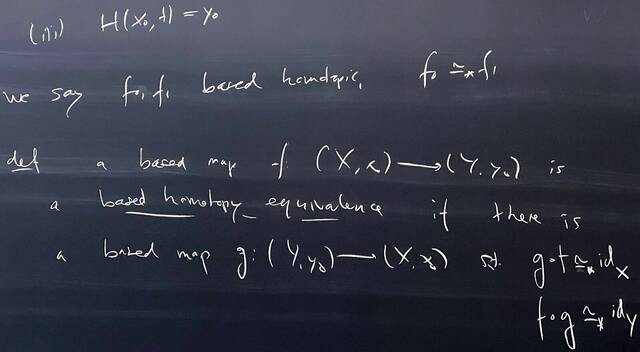 (iii) H(x₀,t) = y₀
we say f₀, f₁ based homotopic, f₀ ≃⁎ f₁
def a based map f: (X, x₀) ⟶ (Y, y₀) is
a based homotopy equivalence if there is
a based map g: (Y, y₀) ⟶ (X, x₀) st. g∘f ≃⁎ id_X
f∘g ≃⁎ id_Y